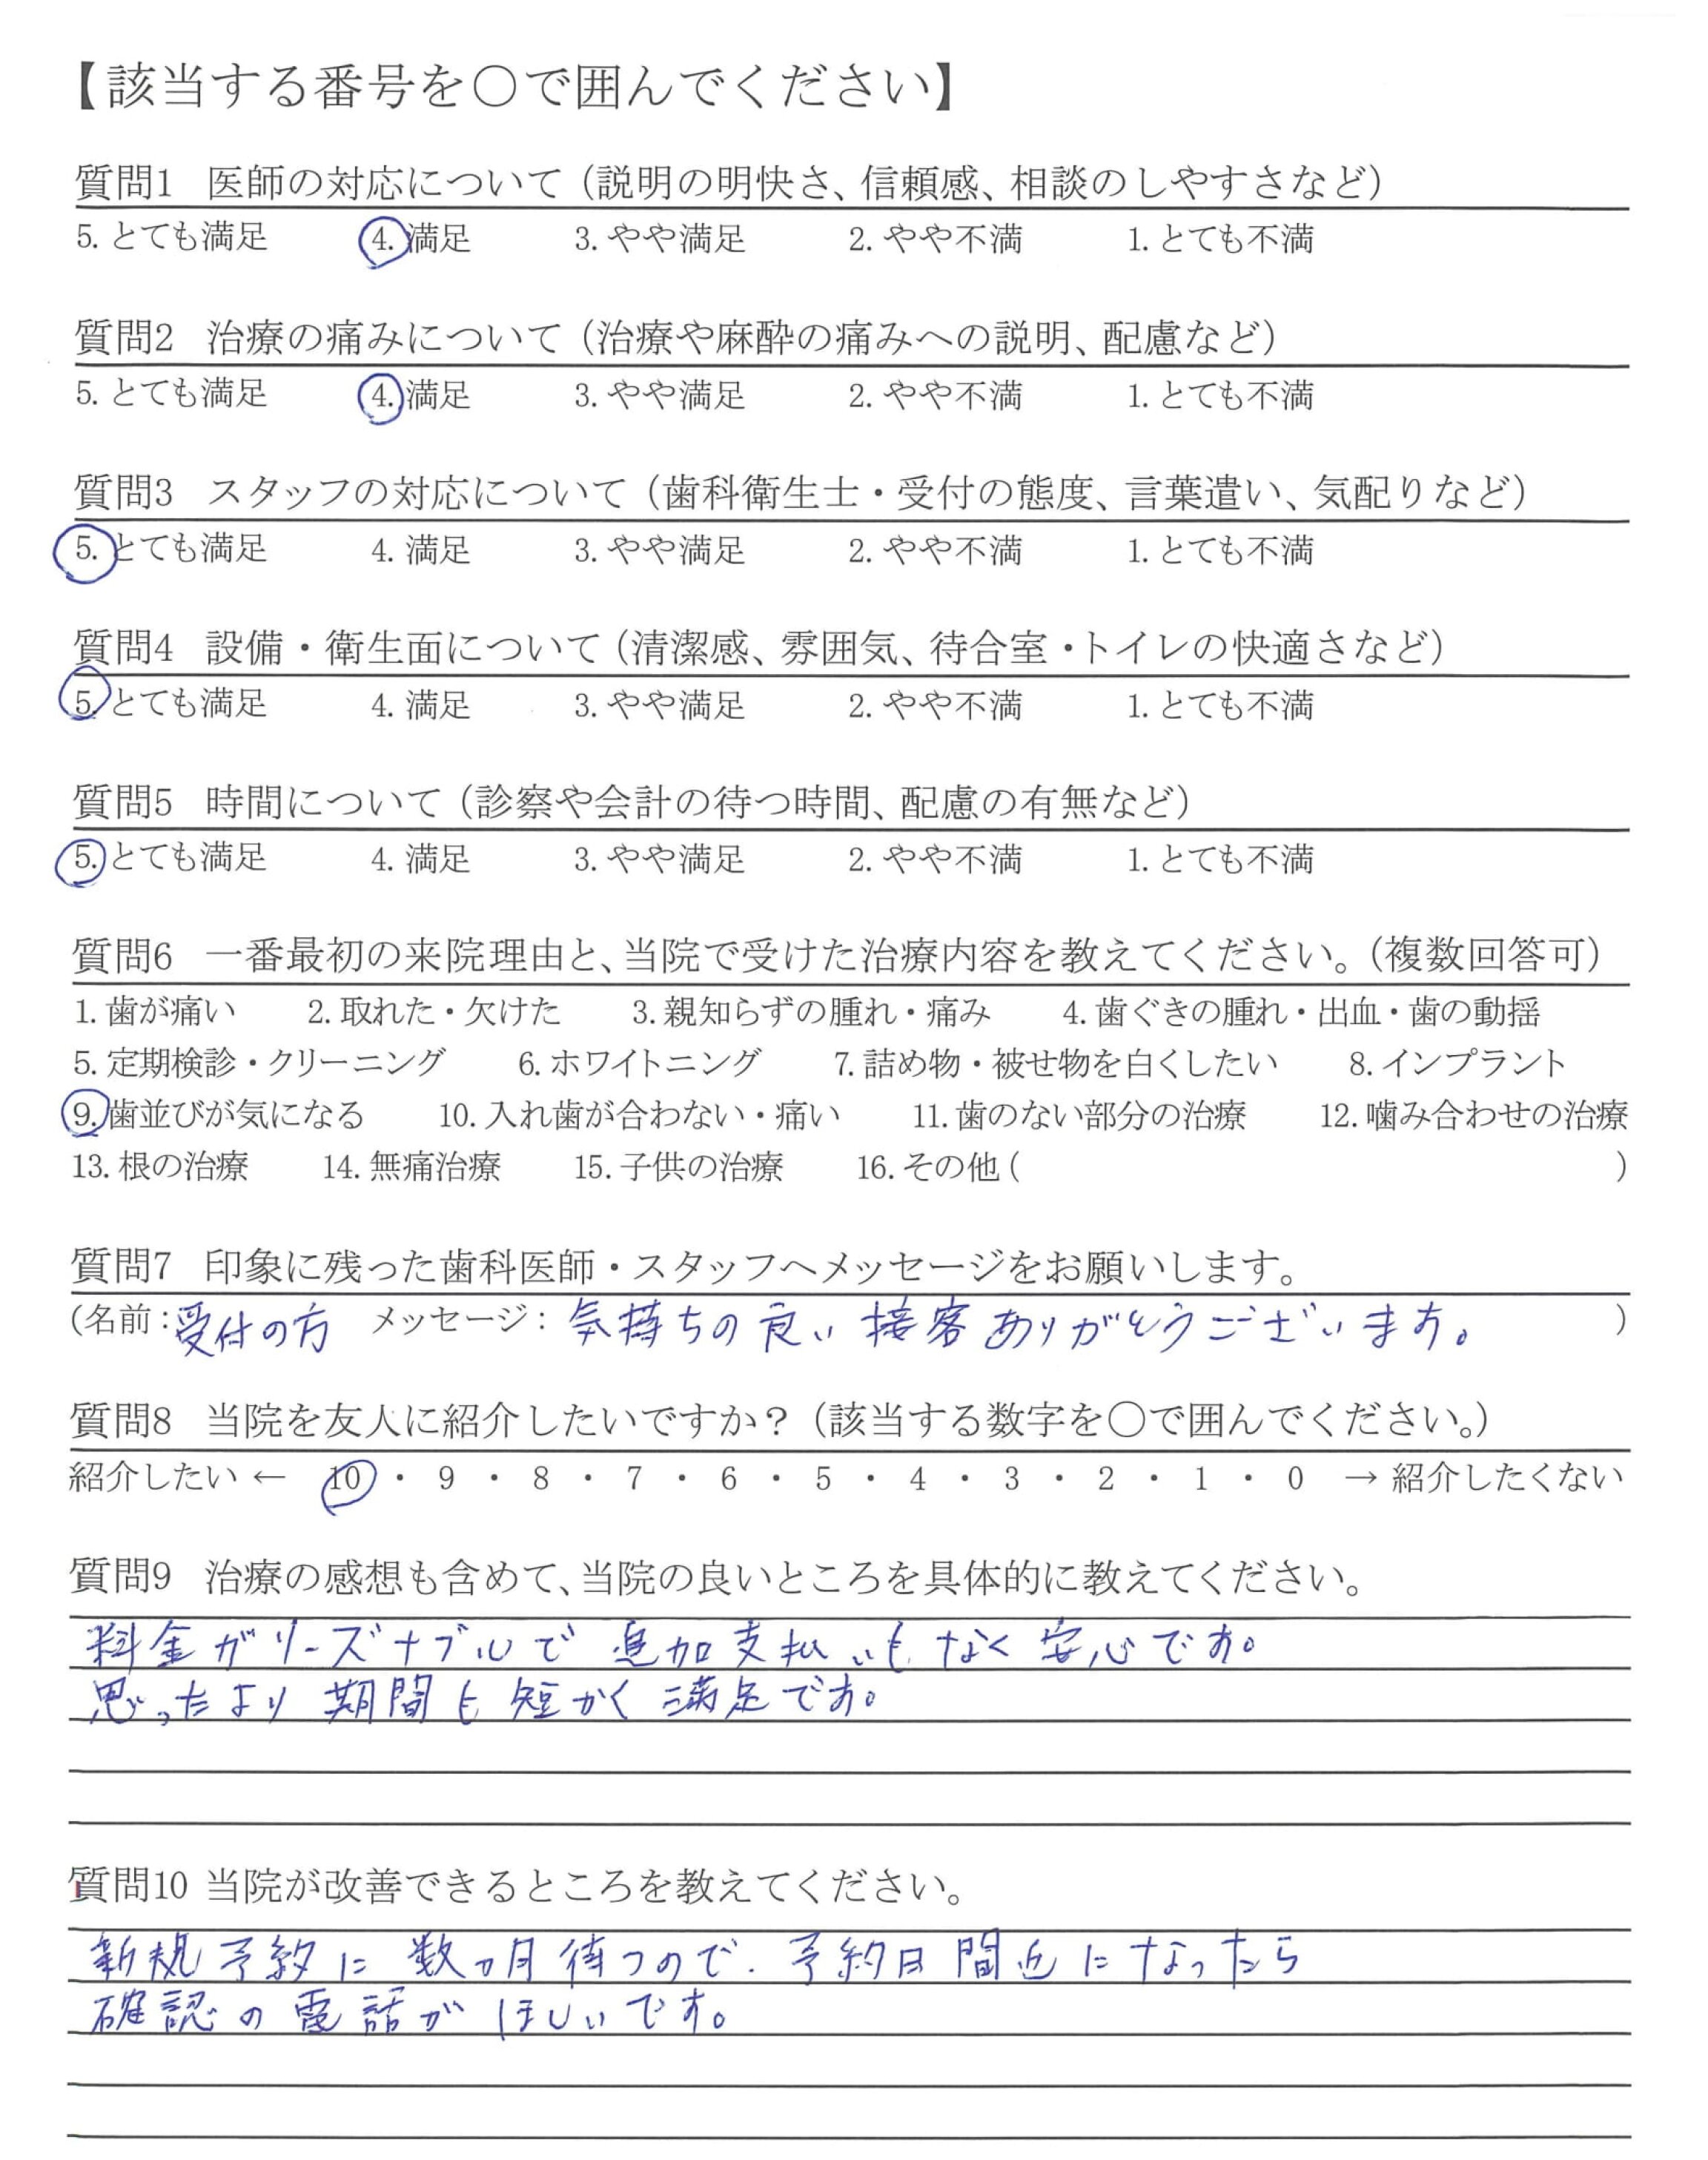 【該当する番号を○で囲んでください】
質問1 医師の対応について（説明の明快さ、信頼感、相談のしやすさなど）
5. とても満足 4. 満足 3. やや満足 2. やや不満 1. とても不満
質問2 治療の痛みについて（治療や麻酔の痛みへの説明、配慮など）
5. とても満足 4. 満足 3. やや満足 2. やや不満 1. とても不満
質問3 スタッフの対応について（歯科衛生士・受付の態度、言葉遣い、気配りなど）
5. とても満足 4. 満足 3. やや満足 2. やや不満 1. とても不満
質問4 設備・衛生面について（清潔感、雰囲気、待合室・トイレの快適さなど）
5. とても満足 4. 満足 3. やや満足 2. やや不満 1. とても不満
質問5 時間について（診察や会計の待つ時間、配慮の有無など）
5. とても満足 4. 満足 3. やや満足 2. やや不満 1. とても不満
質問6 一番最初の来院理由と、当院で受けた治療内容を教えてください。（複数回答可）
1. 歯が痛い 2. 取れた・欠けた 3. 親知らずの腫れ・痛み 4. 歯ぐきの腫れ・出血・歯の動揺
5. 定期検診・クリーニング 6. ホワイトニング 7. 詰め物・被せ物を白くしたい 8. インプラント
9. 歯並びが気になる 10. 入れ歯が合わない・痛い 11. 歯のない部分の治療 12. 噛み合わせの治療
13. 根の治療 14. 無痛治療 15. 子供の治療 16. その他 ( )
質問7 印象に残った歯科医師・スタッフへメッセージをお願いします。
(名前：受付の方 メッセージ：気持ちの良い接客ありがとうございます。 )
質問8 当院を友人に紹介したいですか？（該当する数字を○で囲んでください。）
紹介したい ← 10 ・ 9 ・ 8 ・ 7 ・ 6 ・ 5 ・ 4 ・ 3 ・ 2 ・ 1 ・ 0 → 紹介したくない
質問9 治療の感想も含めて、当院の良いところを具体的に教えてください。
料金がリーズナブルで追加支払いもなく安心です。
思ったより期間も短かく満足です。
質問10 当院が改善できるところを教えてください。
新規予約に数ヵ月待つので、予約日間近になったら
確認の電話がほしいです。